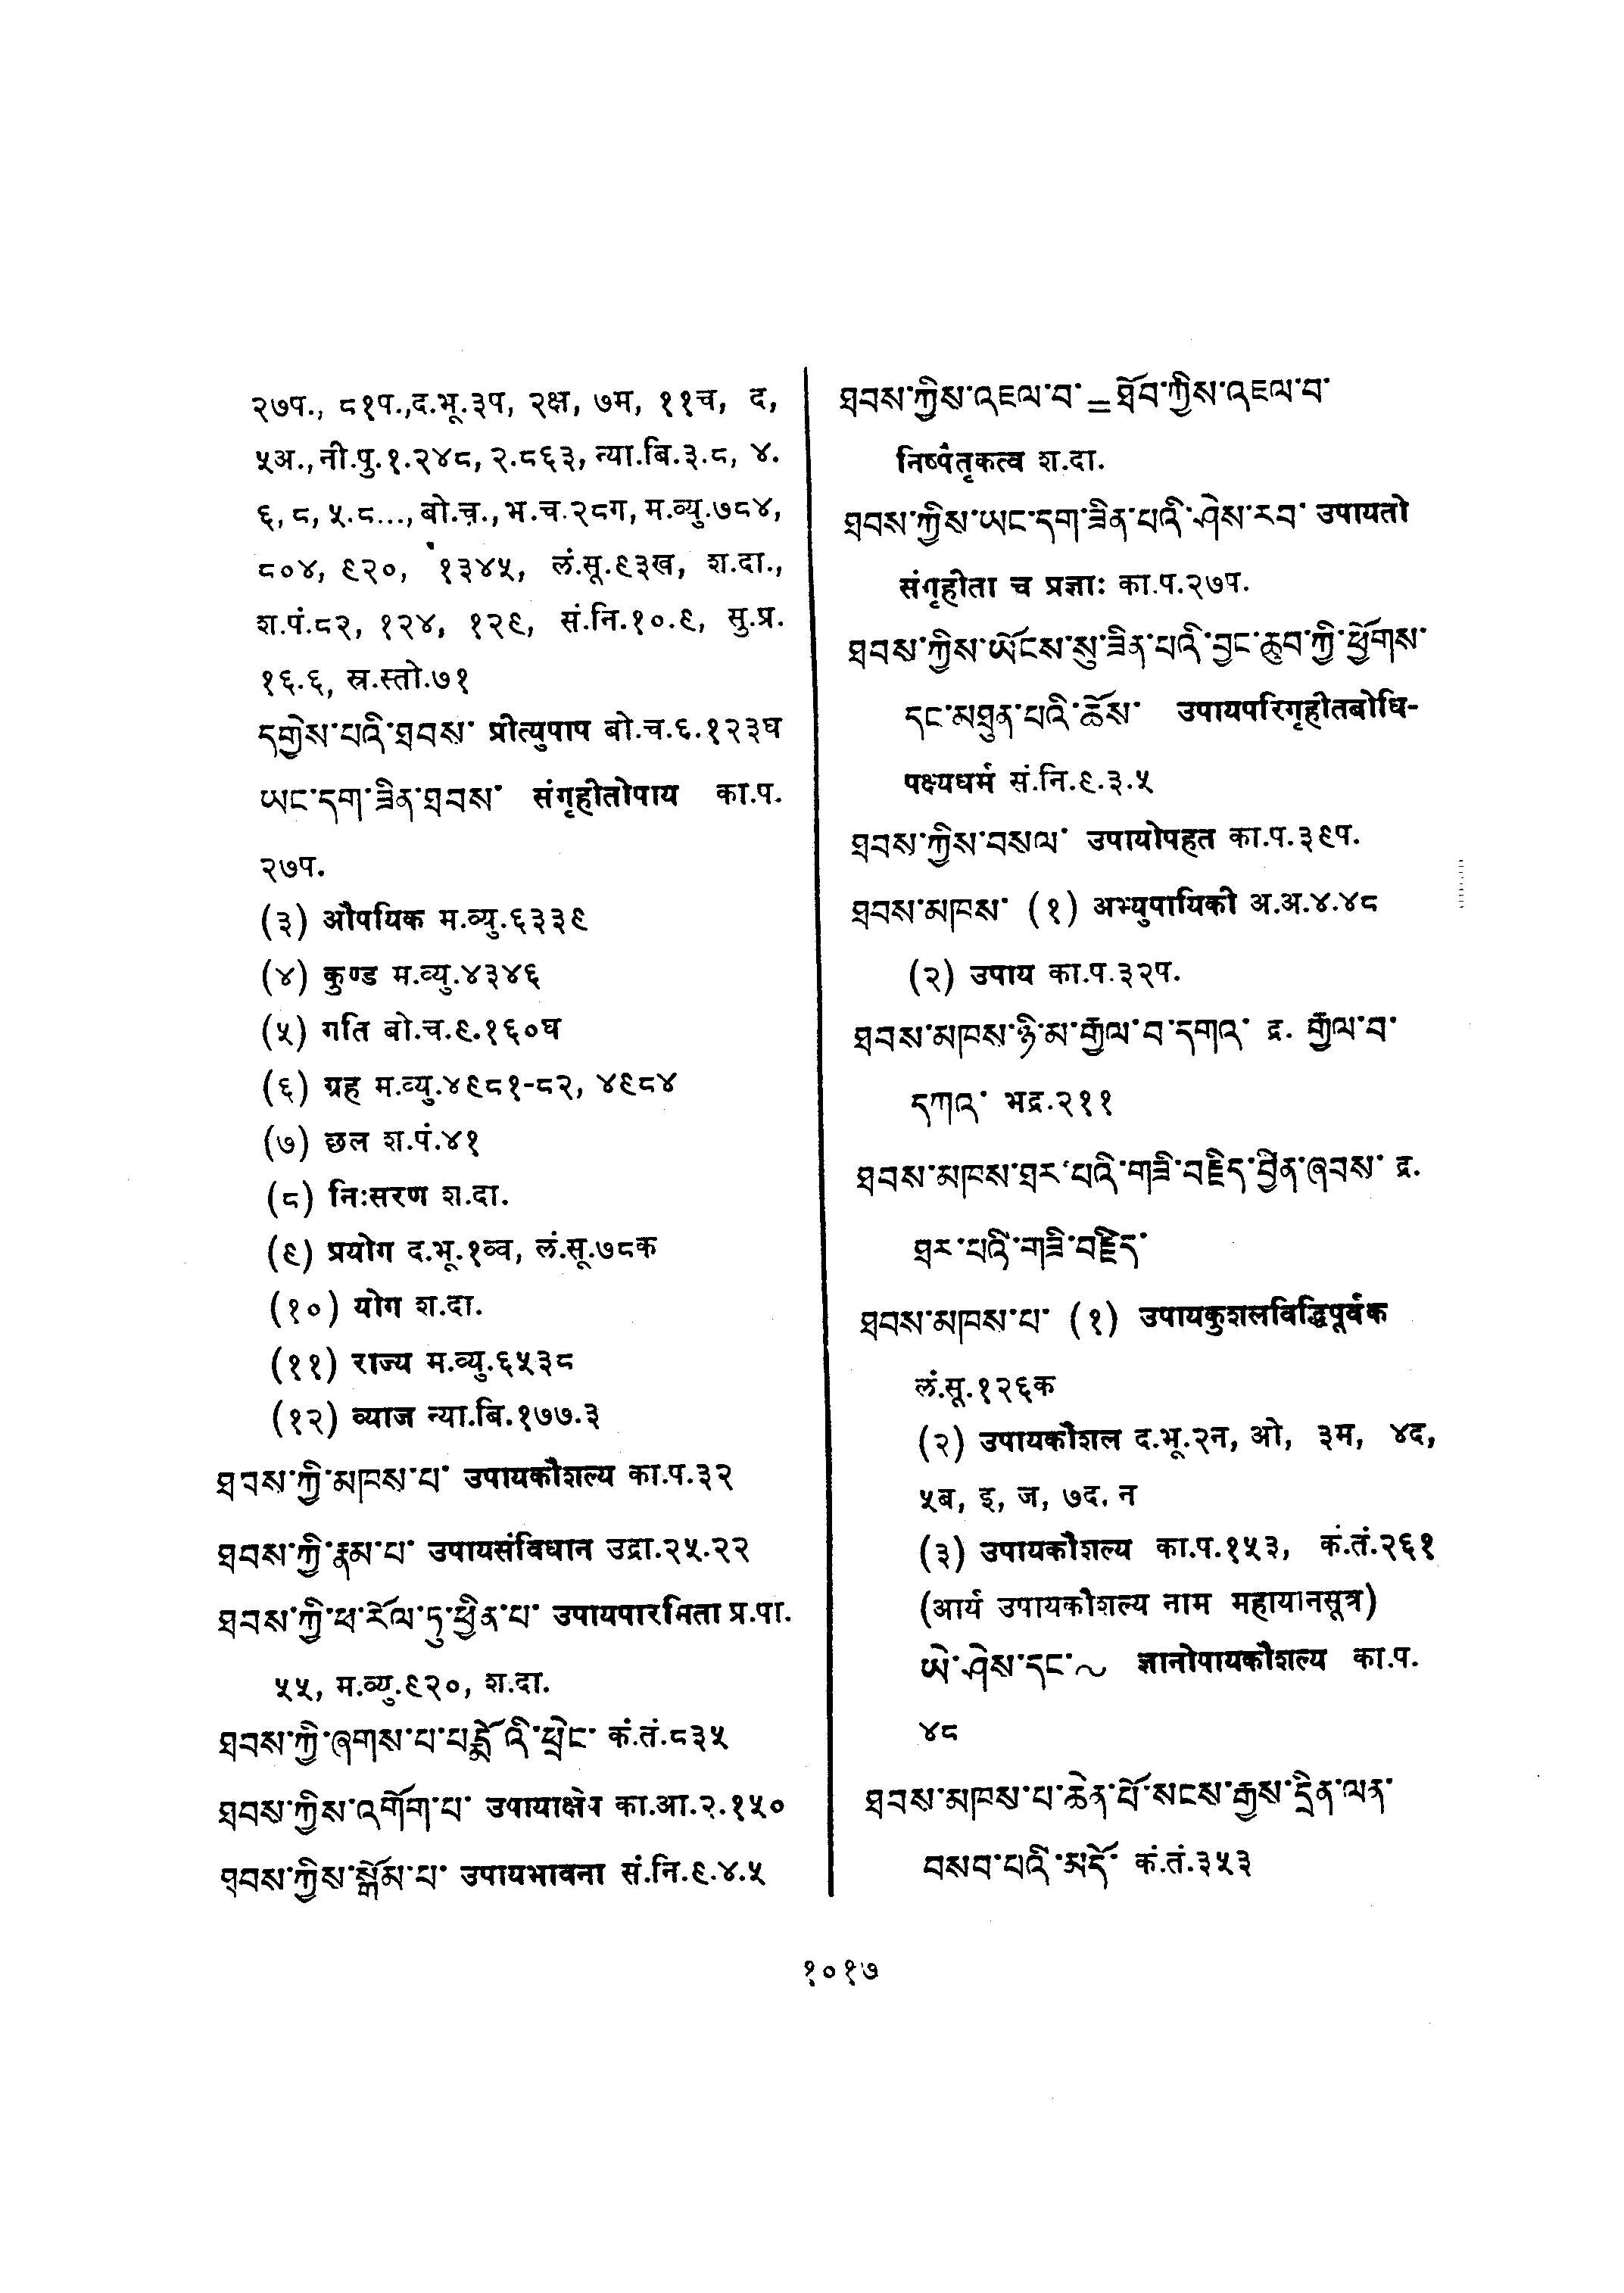 २७प., ८१प.,द.भू.३प, २क्ष, ७म, ११च, द,
५अ., नी.पु.१.२४८, २.८६३, न्या.बि.३.८, ४.
६, ८, ५.८..., बो.च., भ.च.२८ग, म.व्यु.७८४,
८०४, ९२०, १३४५, लं.सू.९३ख, श.दा.,
श.पं.८२, १२४, १२९, सं.नि.१०.९, सु.प्र.
१६.६, स्र.स्तो.७१
དགྱེས་པའི་ཐབས་ प्रीत्युपाप बो.च.६.१२३घ
ཡང་དག་ཟིན་ཐབས་ संगृहीतोपाय का.प.
२७प.
(३) औपयिक म.व्यु.६३३९
(४) कुण्ड म.व्यु.४३४६
(५) गति बो.च.९.१६०घ
(६) ग्रह म.व्यु.४९८१-८२, ४९८४
(७) छल श.पं.४१
(८) निःसरण श.दा.
(९) प्रयोग द.भू.१व्व, लं.सू.७८क
(१०) योग श.दा.
(११) राज्य म.व्यु.६५३८
(१२) व्याज न्या.बि.१७७.३
ཐབས་ཀྱི་མཁས་པ་ उपायकौशल्य का.प.३२
ཐབས་ཀྱི་རྣམ་པ་ उपायसंविधान उद्रा.२५.२२
ཐབས་ཀྱི་ཕ་རོལ་ཏུ་ཕྱིན་པ་ उपायपारमिता प्र.पा.
५५, म.व्यु.९२०, श.दा.
ཐབས་ཀྱི་ཞགས་པ་པདྨོའི་ཕྲེང་ कं.तं.८३५
ཐབས་ཀྱིས་འགོག་པ་ उपायाक्षेप का.आ.२.१५०
ཐབས་ཀྱིས་སྒོམ་པ་ उपायभावना सं.नि.९.४.५
ཐབས་ཀྱིས་འཇལ་བ་ = ཐོབ་ཀྱིས་འཇལ་བ་
निष्पंतृकत्व श.दा.
ཐབས་ཀྱིས་ཡང་དག་ཟིན་པའི་ཤེས་རབ་ उपायतो
संगृहीता च प्रज्ञाः का.प.२७प.
ཐབས་ཀྱིས་ཡོངས་སུ་ཟིན་པའི་བྱང་ཆུབ་ཀྱི་ཕྱོགས་
དང་མཐུན་པའི་ཆོས་ उपायपरिगृहीतबोधि-
पक्ष्यधर्म सं.नि.९.३.५
ཐབས་ཀྱིས་བསལ་ उपायोपहत का.प.३९प.
ཐབས་མཁས་ (१) अभ्युपायिकी अ.अ.४.४८
(२) उपाय का.प.३२प.
ཐབས་མཁས་ཉི་མ་རྒྱལ་བ་དགའ་ द्र. རྒྱལ་བ་
དཀའ་ भद्र.२११
ཐབས་མཁས་ཐར་པའི་གཟི་བརྗིད་བྱིན་ཞབས་ द्र.
ཐར་པའི་གཟི་བརྗིད་
ཐབས་མཁས་པ་ (१) उपायकुशलविद्धिपूर्वक
लं.सू.१२६क
(२) उपायकौशल द.भू.२न, ओ, ३म, ४द,
५ब, इ, ज, ७द. न
(३) उपायकौशल्य का.प.१५३, कं.तं.२६१
(आर्य उपायकौशल्य नाम महायानसूत्र)
ཡེ་ཤེས་དང་~ ज्ञानोपायकौशल्य का.प.
४८
ཐབས་མཁས་པ་ཆེན་པོ་སངས་རྒྱས་དྲིན་ལན་
བསབ་པའི་མདོ་ कं.तं.३५३
१०१७